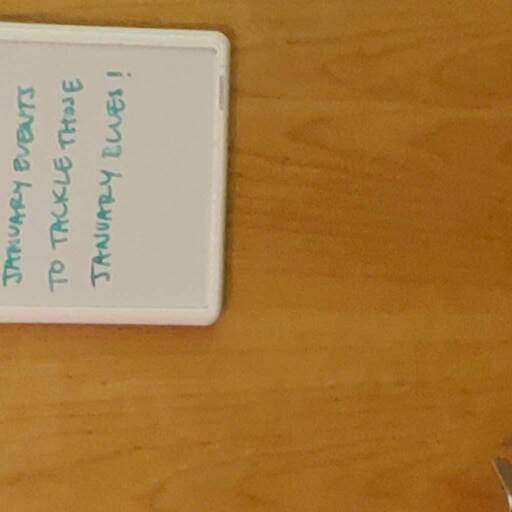 JANUARY EVENTS
TO TACKLE THOSE
JANUARY BLUES!